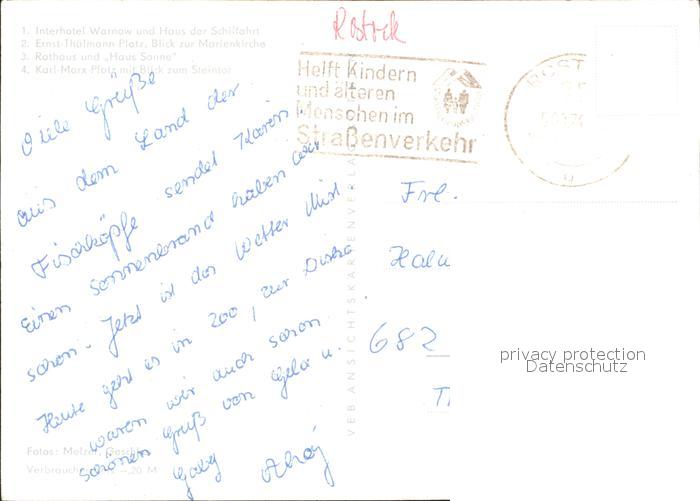 1. Interhotel Warnow und Haus der Schiffahrt
2. Ernst-Thälmann Platz, Blick zur Marienkirche
3. Rathaus und „Haus Sonne"
4. Karl-Marx-Platz mit Blick zum Steintor
Rostock
Helft Kindern
und älteren
Menschen im
Straßenverkehr
ROST
Viele Grüße
aus dem Land der
Fischköpfe sendet Karin
Einen Sonnenbrand haben wir
schon. Jetzt ist das Wetter Mist
Heute geht es in Zoo, zur Disko
waren wir auch schon
schönen Gruß von u.
Gaby Ahoj
VEB ANSICHTSKARTENVERLA
Frl.
682
Fotos:
Verbraucher 20 M
privacy protection
Datenschutz